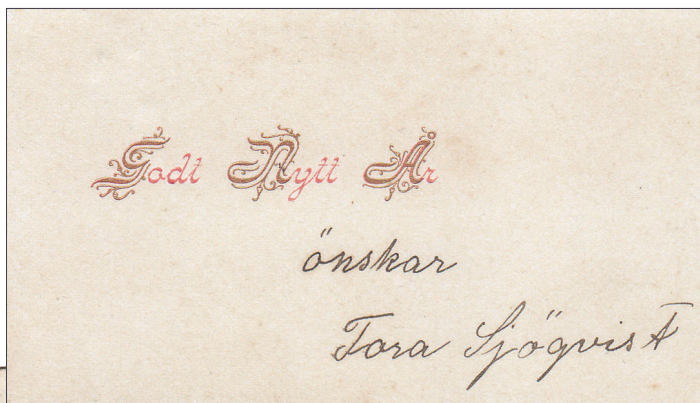 Godt Nytt År
önskar
Tora Sjöqvist